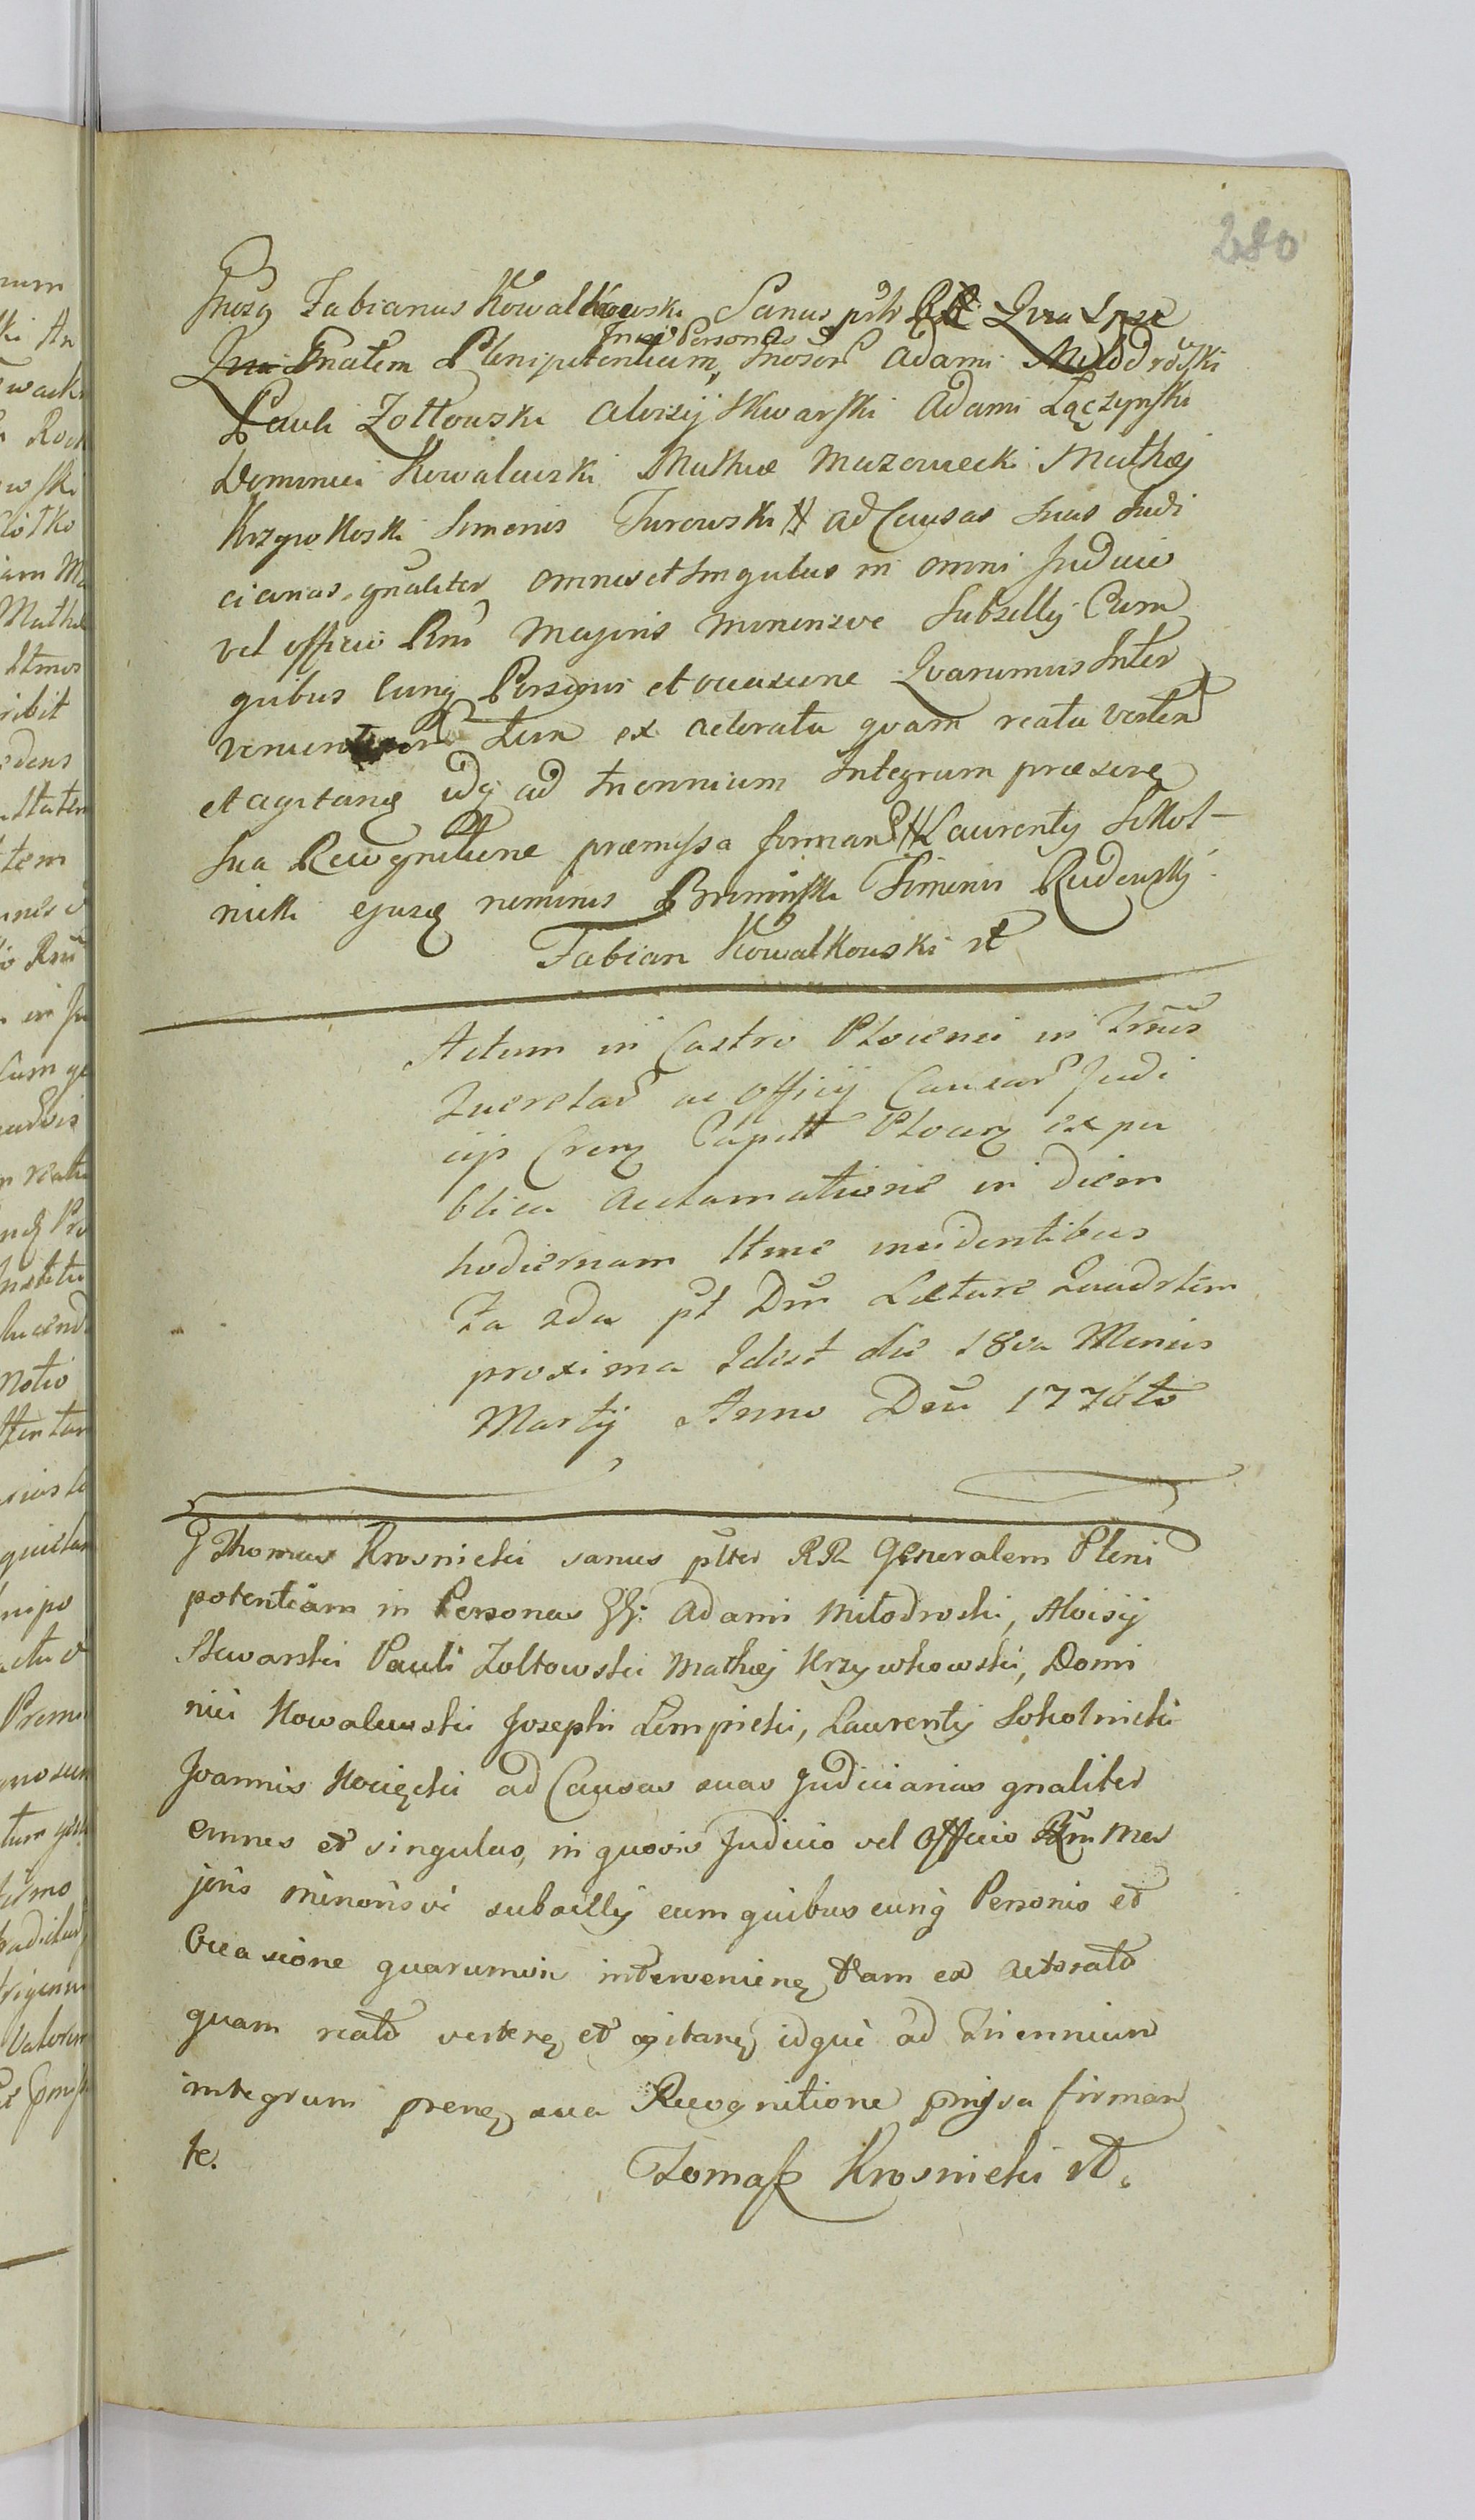 280
Gnosq Fabianus Kowalkowski Sanus pslr RR Qvia Ipse
Gnalem Plenipotentiam in Personas Gnosor Adami Miłodrowski
Pauli Zołtowski Aloisij Skwarski Adami Łączynski
Dominici Kowalewski Mathæ Mazowiecki Mathæj
Krzywkoski Simonis Turowski # ad Causas Suas Judi
cianas gnaliter omnes et Singulas in omni Judicio
vel officio Rni Majoris minorisve Subselly Cum
quibus cunq Personis et occasione Qvarumvis Inter
venien tam ex actoratu qvam reatu verten
et agitanq idq ad triennium Integrum præsenq
Sua Recognitione præmissa forman # Laurenty Sokol-
nicki ejusq nominis Brominski Simonis Rudowski
Fabian Kowalkowski
Actum in Castro Plocensi in Trnis
Qverelar ac Officij Causar Judi
cijs Crenq Capitt Plocenq ex pu
blica acclamatione in diem
hodiernam Itme incidentibus
Fa 2da pt Dni Lætare Quadrlem
proxima Idest die 18va Mensis
Martij Anno Dni 1776to
G Thomas Krosnicki sanus plter RR Generalem Pleni
potentiam in Personas GG: Adami Miłodroski, Aloisij
Skwarski Pauli Zoltowski Mathæj Krzywkowski, Domi
nici Kowalewski Josephi Lempicki, Laurentij Sokolnicki
Joannis Kocięcki ad Causas suas Judicianas gnaliter
omnes et singulas, in quovis Judicio vel Officio Rni Ma
joris minorisvè subsellij cum quibus cunq Personis et
Occasione quarumvis intervenienq tam ex actoratu
quam reatu vertenq et agitanq idquè ad Triennium
integrum prenq sua Recognitione pmissa firman
te.
Tomasz Krosnicki